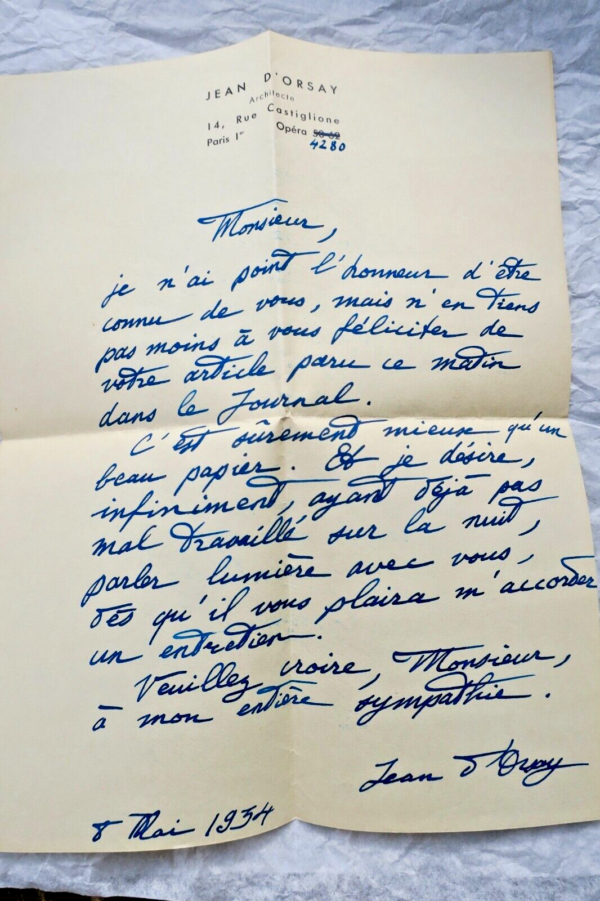 JEAN D'ORSAY
Architecte
14, Rue Castiglione
Paris 1er Opéra 50-62
4280
Monsieur,
je n'ai point l'honneur d'être
connu de vous, mais n'en tiens
pas moins à vous féliciter de
votre article paru ce matin
dans le Journal.
C'est sûrement mieux qu'un
beau papier. Et je désire,
infiniment, ayant déjà pas
mal travaillé sur la nuit,
parler lumière avec vous,
dès qu'il vous plaira m'accorder
un entretien.
Veuillez croire, Monsieur,
à mon entière sympathie.
Jean d'Orsay
8 Mai 1934